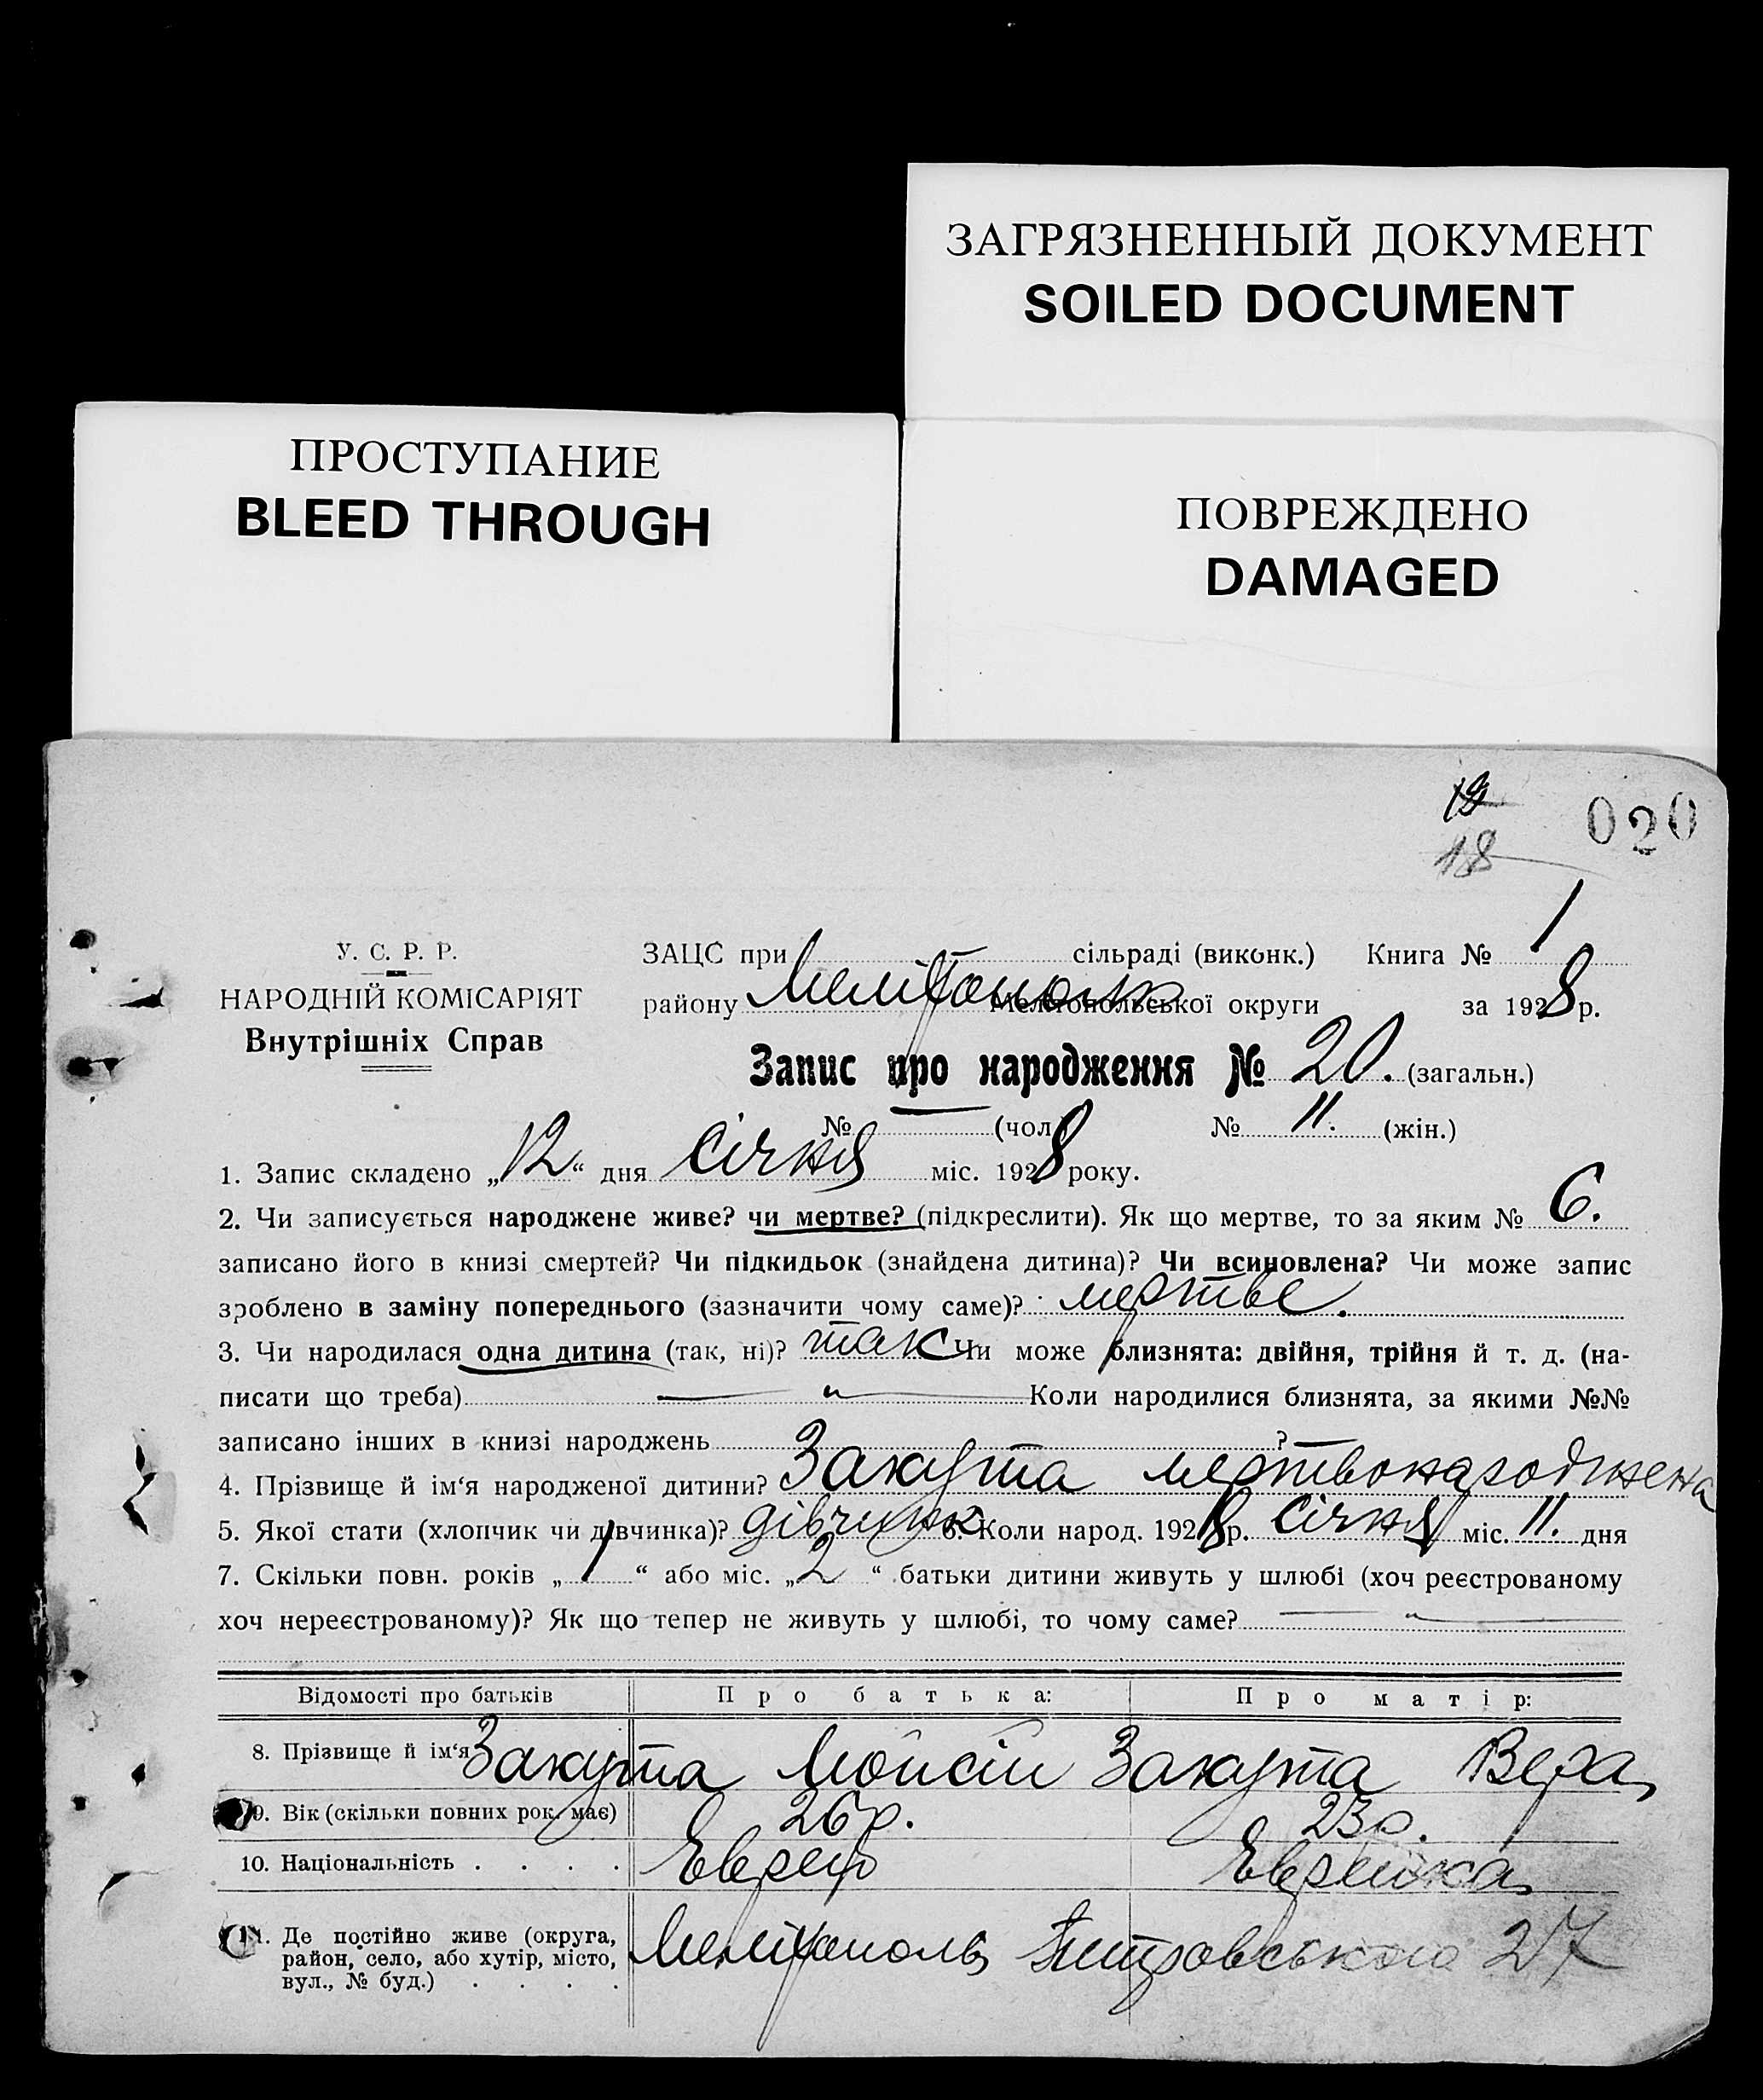 ЗАГРЯЗНЕННЫЙ ДОКУМЕНТ
SOILED DOCUMENT
ПРОСТУПАНИЕ
BLEED THROUGH
ПОВРЕЖДЕНО
DAMAGED
020
18
У. С. Р. Р.
НАРОДНІЙ КОМІСАРІЯТ
Внутрішніх Справ
ЗАЦС при сільраді (виконк.) Книга № 1
району Мелітополь Мелітопольської округи за 1928 р.
Запис про народження № 20. (загальн.)
№ — (чол.) № 11. (жін.)
1. Запис складено „12“ дня січня міс. 1928 року.
2. Чи записується народжене живе? чи мертве? (підкреслити). Як що мертве, то за яким № 6.
записано його в книзі смертей? Чи підкидьок (знайдена дитина)? Чи всиновлена? Чи може запис
зроблено в заміну попереднього (зазначити чому саме)? мертве.
3. Чи народилася одна дитина (так, ні)? так Чи може близнята: двійня, трійня й т. д. (на-
писати що треба) — „ — Коли народилися близнята, за якими №№
записано інших в книзі народжень ?
4. Прізвище й ім‘я народженої дитини? Закута мертвонароджена
5. Якої стати (хлопчик чи дівчинка)? дівчинка 6. Коли народ. 1928 р. січня міс. 11. дня
7. Скільки повн. років „1“ або міс. „2“ батьки дитини живуть у шлюбі (хоч реєстрованому
хоч нереєстрованому)? Як що тепер не живуть у шлюбі, то чому саме? — „ —
Відомості про батьків Про батька: Про матір:
8. Прізвище й ім‘я Закута Мойсій Закута Вера
9. Вік (скільки повних рок. має) 26 р. 23 р.
10. Національність . . . . Еврей Еврейка
11. Де постійно живе (округа,
район, село, або хутір, місто,
вул., № буд.) . . . . Мелітополь 27